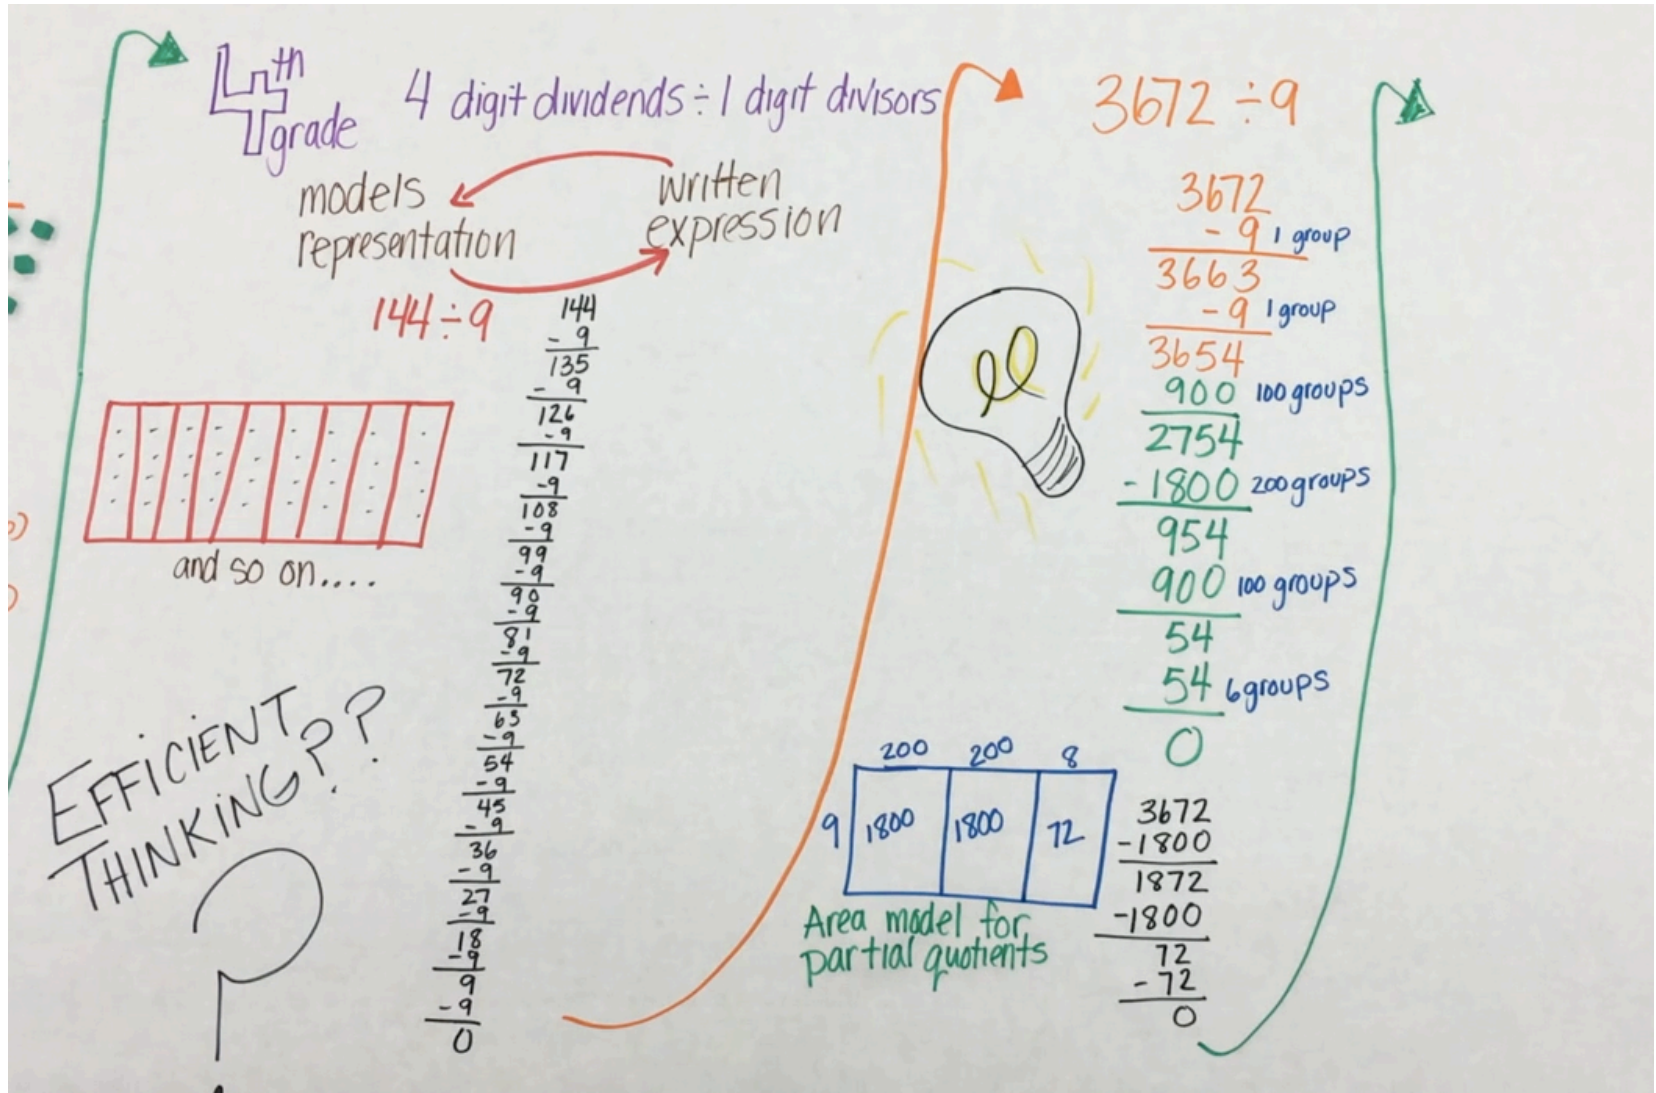 4th grade
4 digit dividends ÷ 1 digit divisors
models
representation
written
expression
144 ÷ 9
and so on....
144
- 9
135
- 9
126
- 9
117
- 9
108
- 9
99
- 9
90
- 9
81
- 9
72
- 9
63
- 9
54
- 9
45
- 9
36
- 9
27
- 9
18
- 9
9
- 9
0
EFFICIENT
THINKING??
?
3672 ÷ 9
3672
- 9 1 group
3663
- 9 1 group
3654
900 100 groups
2754
- 1800 200 groups
954
900 100 groups
54
54 6 groups
0
200 200 8
9 1800 1800 72
Area model for
partial quotients
3672
- 1800
1872
- 1800
72
- 72
0